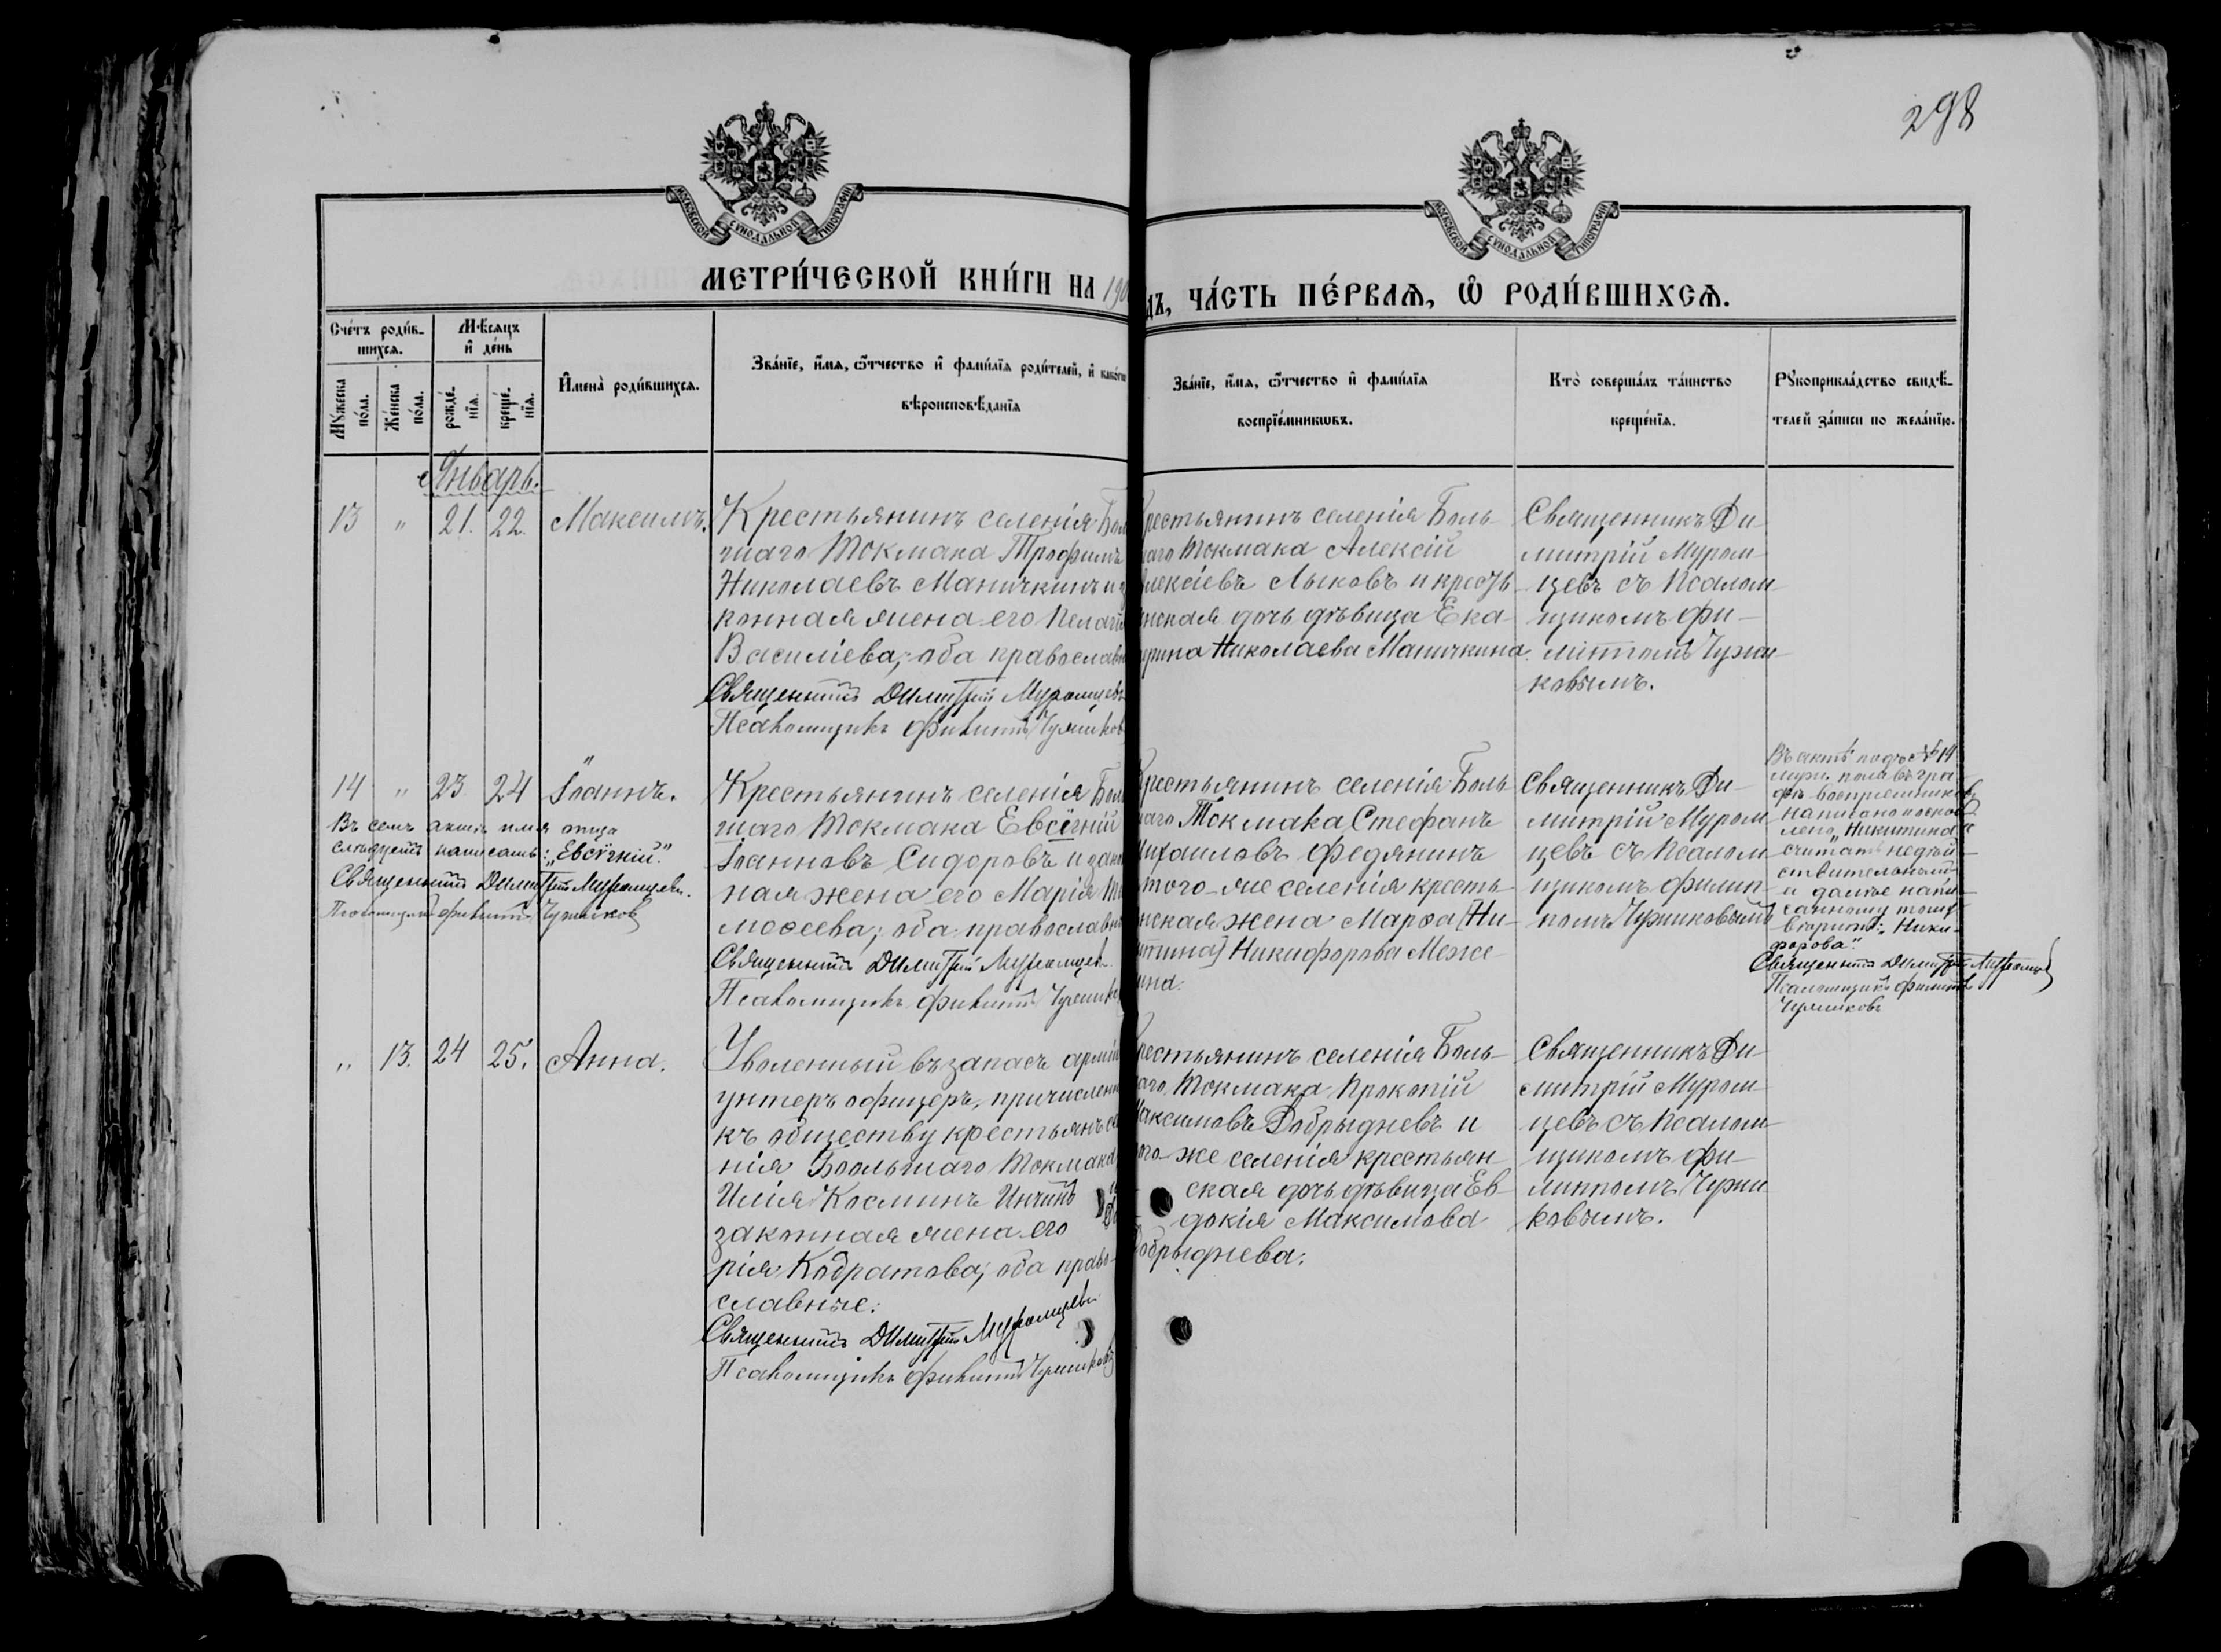 298
МОСКОВСКОЙ СѴНОДАЛЬНОЙ ТИПОГРАФІИ
МОСКОВСКОЙ СѴНОДАЛЬНОЙ ТИПОГРАФІИ
МЕТРИ́ЧЕСКОЙ КНИ́ГИ НА 190
ДЪ, ЧА́СТЬ ПЕ́РВАѦ, Ѽ РОДИ́ВШИХСѦ.
Сче́тъ роди́в-
шихсѧ.
Мꙋжеска
по́ла.
Же́нска
по́ла.
Мѣ́сѧцъ
и҆ де́нь
рожде́-
нїѧ.
креще́-
нїѧ.
И҆мена̀ роди́вшихсѧ.
Зва́нїе, и҆́мѧ, ѻ҆́тчество и҆ фами́лїѧ роди́телей, и҆ како́гѡ
вѣроисповѣ́данїѧ
Зва́нїе, и҆́мѧ, ѻ҆́тчество и҆ фами́лїѧ
воспрїе́мникѡвъ.
Кто̀ соверша́лъ та́инство
креще́нїѧ.
Рꙋкоприкла́дство свидѣ́-
телей за́писи по жела́нїю.
Январь.
13 " 21. 22. Максимъ.
Крестьянинъ селенія Боль
шаго Токмака Трофимъ
Николаевъ Маничкинъ и за
конная жена его Пелагія
Василіева; оба православн
Священникъ Димитрій Муромцевъ
Псаломщикъ Филиппъ Чужиков
рестьянинъ селенія Боль-
аго Токмака Алексій
лексіевъ Лыковъ и кресть-
нская дочь дѣвица Ека-
ерина Николаева Маничкина.
Священникъ Ди-
митрій Муром-
цевъ съ псалом-
щикомъ Фи-
липпомъ Чужи-
ковымъ.
14 " 23. 24 Іоаннъ.
Въ семъ актѣ имя отца
слѣдуетъ написать: „Евсігній."
Священникъ Димитрій Муромцевъ.
Псаломщикъ Филиппъ Чужиковъ
Крестьянинъ селенія Боль
шаго Токмака Евсігній
Іоанновъ Сидоровъ и закон
ная жена его Марія Ти
моѳеева; оба православн
Священникъ Димитрій Муромцев
Псаломщикъ Филиппъ Чужиков
рестьянинъ селенія Боль
аго Токмака Стефанъ
ихаиловъ Федянинъ
того-же селенія кресть-
нская жена Марѳа [Ни-
итина] Никифорова Меже-
ина.
Священникъ Ди-
митрій Муром
цевъ съ псалом-
щикомъ Филип-
помъ Чужиковымъ
Въ актѣ подъ №14
муж. пола въ гра-
фѣ воспріемниковъ
написано
„Никитина"
считать недѣй-
ствительнымъ
и далѣе напи-
санному
вѣрить: „Ники-
форова".
Священникъ Димитрій Муромцев
Псаломщикъ Филиппъ
Чужиковъ
" 13. 24 25. Анна.
Уволенный въ запасъ арміи
унтеръ офицеръ, причислен
къ обществу крестьянъ се
нія Большаго Токмака
Илія Косминъ
законная жена его
рія Кодратова; оба право-
славные:
Священникъ Димитрій Муромцевъ
Псаломщикъ Филиппъ Чужиковъ
рестьянинъ селенія Боль-
аго Токмака Прокопій
аксимовъ Добрыдневъ и
ого-же селенія крестьян-
ская дочь дѣвица Ев-
докія Максимова
обрыднева.
Священникъ Ди-
митрій Муром-
цевъ съ псалом-
щикомъ Фи-
липпомъ Чужи
ковымъ.